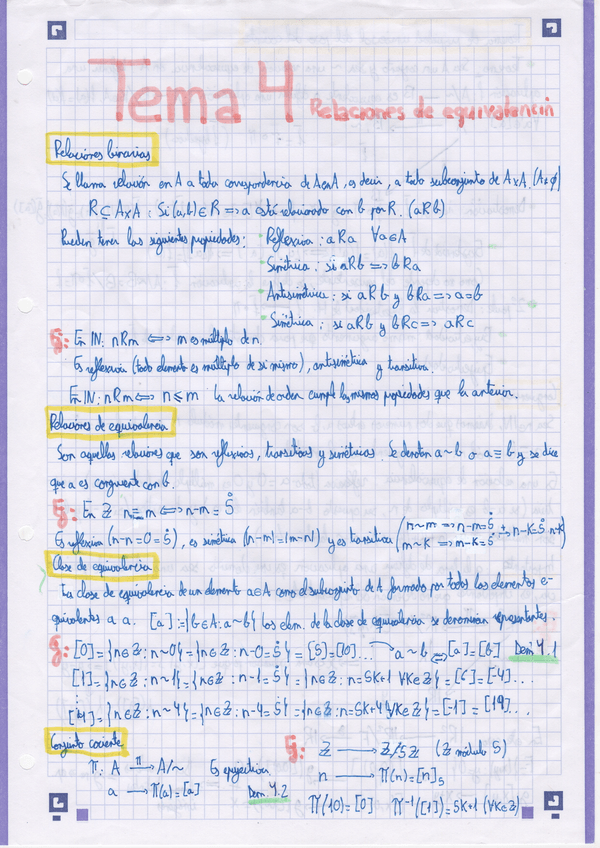 Tema 4 Relaciones de equivalencia
Relaciones binarias
Se llama relación en A a toda correspondencia de A en A, es decir, a todo subconjunto de AxA. (A≠∅)
R⊆AxA : Si (a,b)∈R => a está relacionado con b por R. (aRb)
Pueden tener las siguientes propiedades: · Reflexiva: aRa ∀a∈A
· Simétrica: si aRb => bRa
· Antisimétrica: si aRb y bRa => a=b
· Simétrica: si aRb y bRc => aRc
Ej: En IN: nRm <=> m es múltiplo de n.
Es reflexiva (todo elemento es múltiplo de si mismo), antisimétrica y transitiva.
En IN: nRm <=> n≤m La relación de orden cumple las mismas propiedades que la anterior.
Relaciones de equivalencia
Son aquellas relaciones que son reflexivas, transitivas y simétricas. Se denotan a~b o a≡b y se dice
que a es congruente con b.
Ej: En ℤ n≡m <=> n-m = 5̇
Es reflexiva (n-n=0=5̇), es simétrica (n-m)=(m-n) y es transitiva (n~m => n-m=5̇
m~K => m-K=5̇ + n-K=5̇ n~K)
Clase de equivalencia
La clase de equivalencia de un elemento a∈A como el subconjunto de A formado por todos los elementos e-
quivalentes a a. [a]:={b∈A: a~b} Los elem. de la clase de equivalencia se denominan representantes.
Ej: [0]={n∈ℤ: n~0}={n∈ℤ: n-0=5̇}=[5]=[10]... a~b <=> [a]=[b] Dem 4.1
[1]={n∈ℤ: n~1}={n∈ℤ: n-1=5̇}={n∈ℤ: n=5K+1 ∀K∈ℤ}=[6]=[-4]...
⋮
[4]={n∈ℤ: n~4}={n∈ℤ: n-4=5̇}={n∈ℤ: n=5K+4 ∀K∈ℤ}=[-1]=[19]...
Conjunto cociente
Ej: ℤ ⟶ ℤ/5ℤ (ℤ módulo 5)
Π: A —Π→ A/~ Es epiyectiva
n ⟶ Π(n)=[n]₅
a ⟶ Π(a)=[a] Dem 4.2
Π(10)=[0] Π⁻¹([1])=5K+1 (∀K∈ℤ)